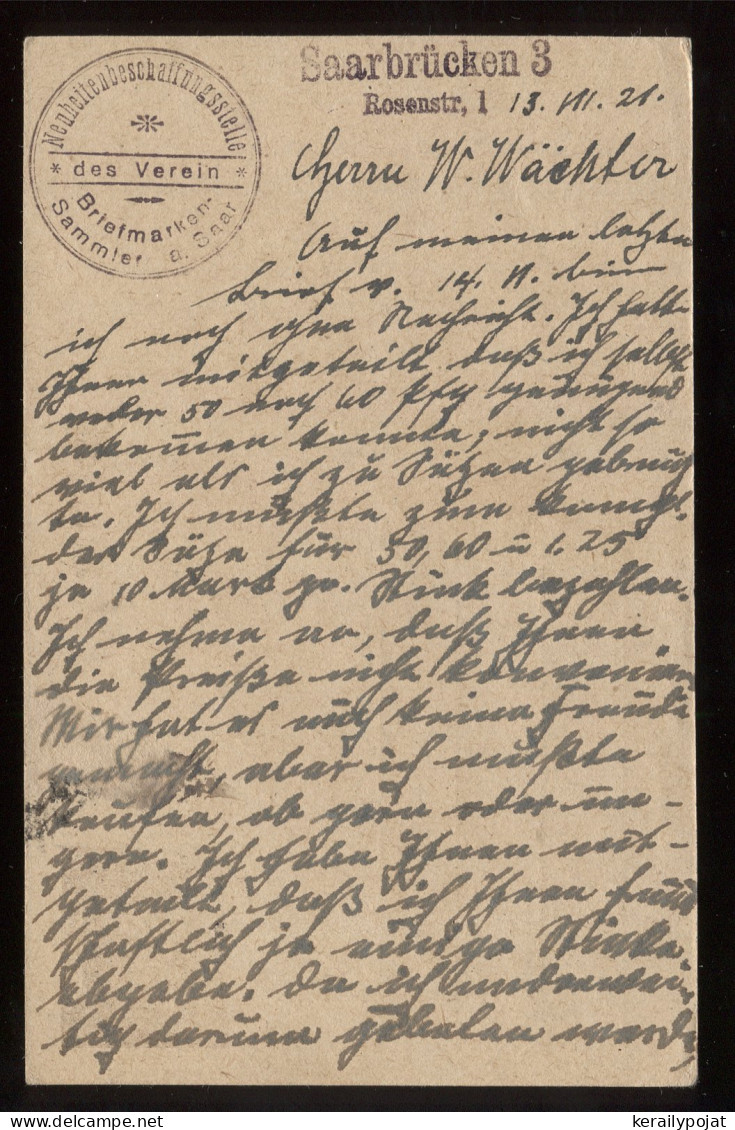 Neuheitenbeschaffungsstelle
* des Verein *
Briefmarken-
Sammler a. Saar
Saarbrücken 3
Rosenstr, 1 13. III. 21.
Herrn W. Wächter
Auf meinen letzten
Brief v. 14. II. bin
ich noch ohne Nachricht. Ich hatte
Ihnen mitgeteilt daß ich selbst
weder 50 noch 60 Pfg genügend
bekommen konnte, nicht so
viel als ich zu Sätzen gebrauch
te. Ich mußte zum
der Sätze für 50, 60 u 1.25
je 10 Mark pr. Stück bezahlen.
Ich nehme an, daß Ihnen
die Preise nicht konvenieren
Mir hat es auch keine Freude
gemacht, aber ich mußte
kaufen, ob gern oder un-
gern. Ich habe Ihnen mit-
geteilt, daß ich Ihnen freund
schaftlich je einige Stücke
abgebe. Da ich anderwei-
tig darum gebeten werde,
kerailypojat.com